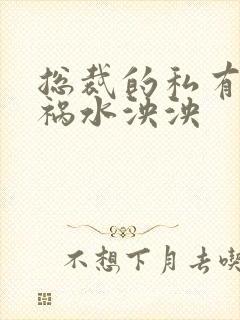 总裁的私有
祸水泱泱
不想下月去喫